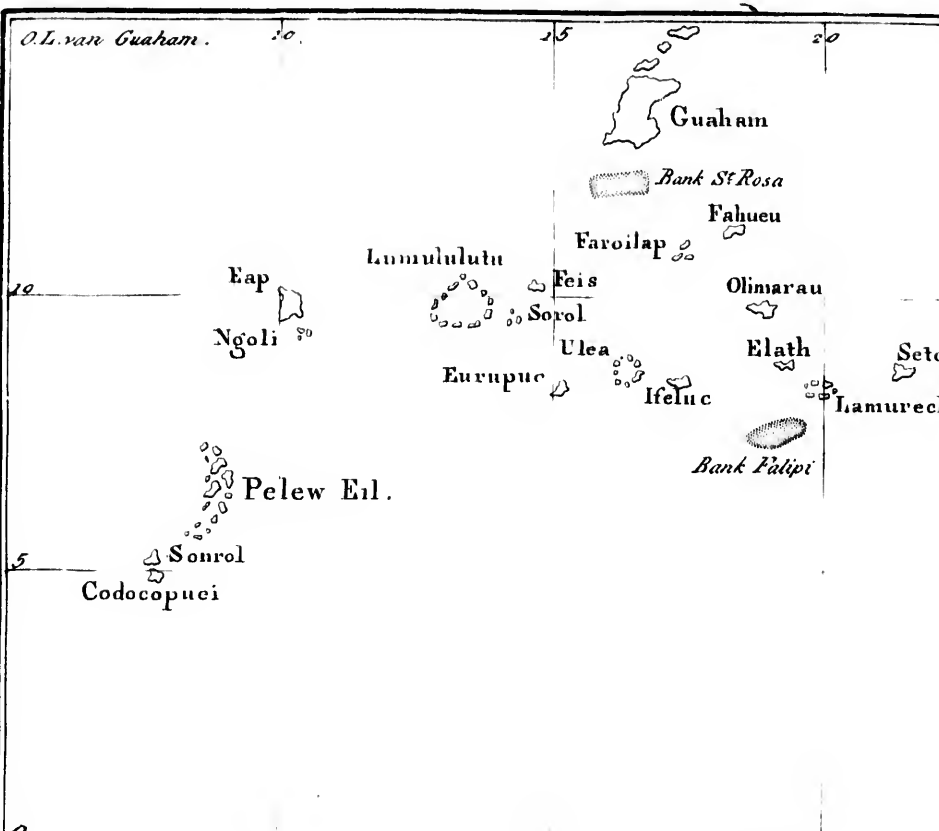 O.L. van Guaham.
10
15
20
Guaham
Bank St Rosa
Fahueu
Faroilap
Lumululutu
Feis
Eap
10
Olimarau
Sorol
Ngoli
Ulea
Elath
Seto
Eurupuc
Ifeluc
Lamurec
Bank Falipi
Pelew Eil.
Sonrol
5
Codocopuei
0